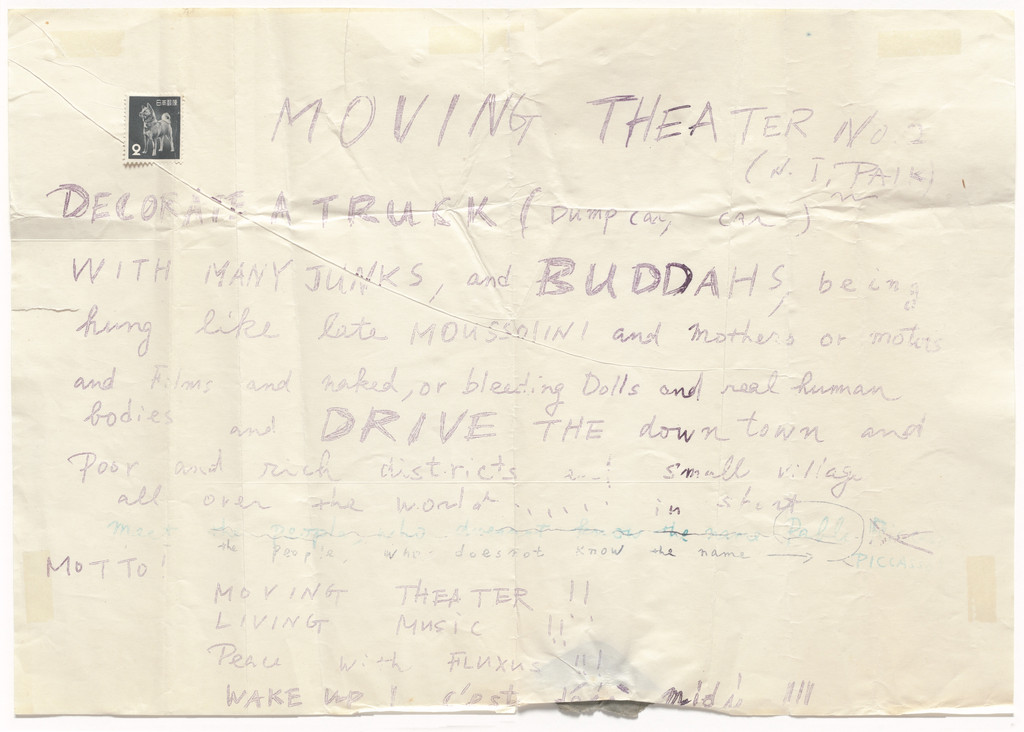 MOVING THEATER No. 2
日本郵便
2
(N. J. PAIK)
DECORATE A TRUCK (Dump car, car)
WITH MANY JUNKS, and BUDDAHS, being
hung like late MOUSSOLINI and Mothers or motors
and Films and naked, or bleeding Dolls and real human
bodies and DRIVE THE down town and
Poor and rich districts and small village
all over the world ..... in short
Meet people who does not know the name Pablo
the People, who does not know the name → PICCA...
MOTTO!
MOVING THEATER !!
LIVING MUSIC !!
Peace with FLUXUS !!!
WAKE UP! c'est déjà midi !!!